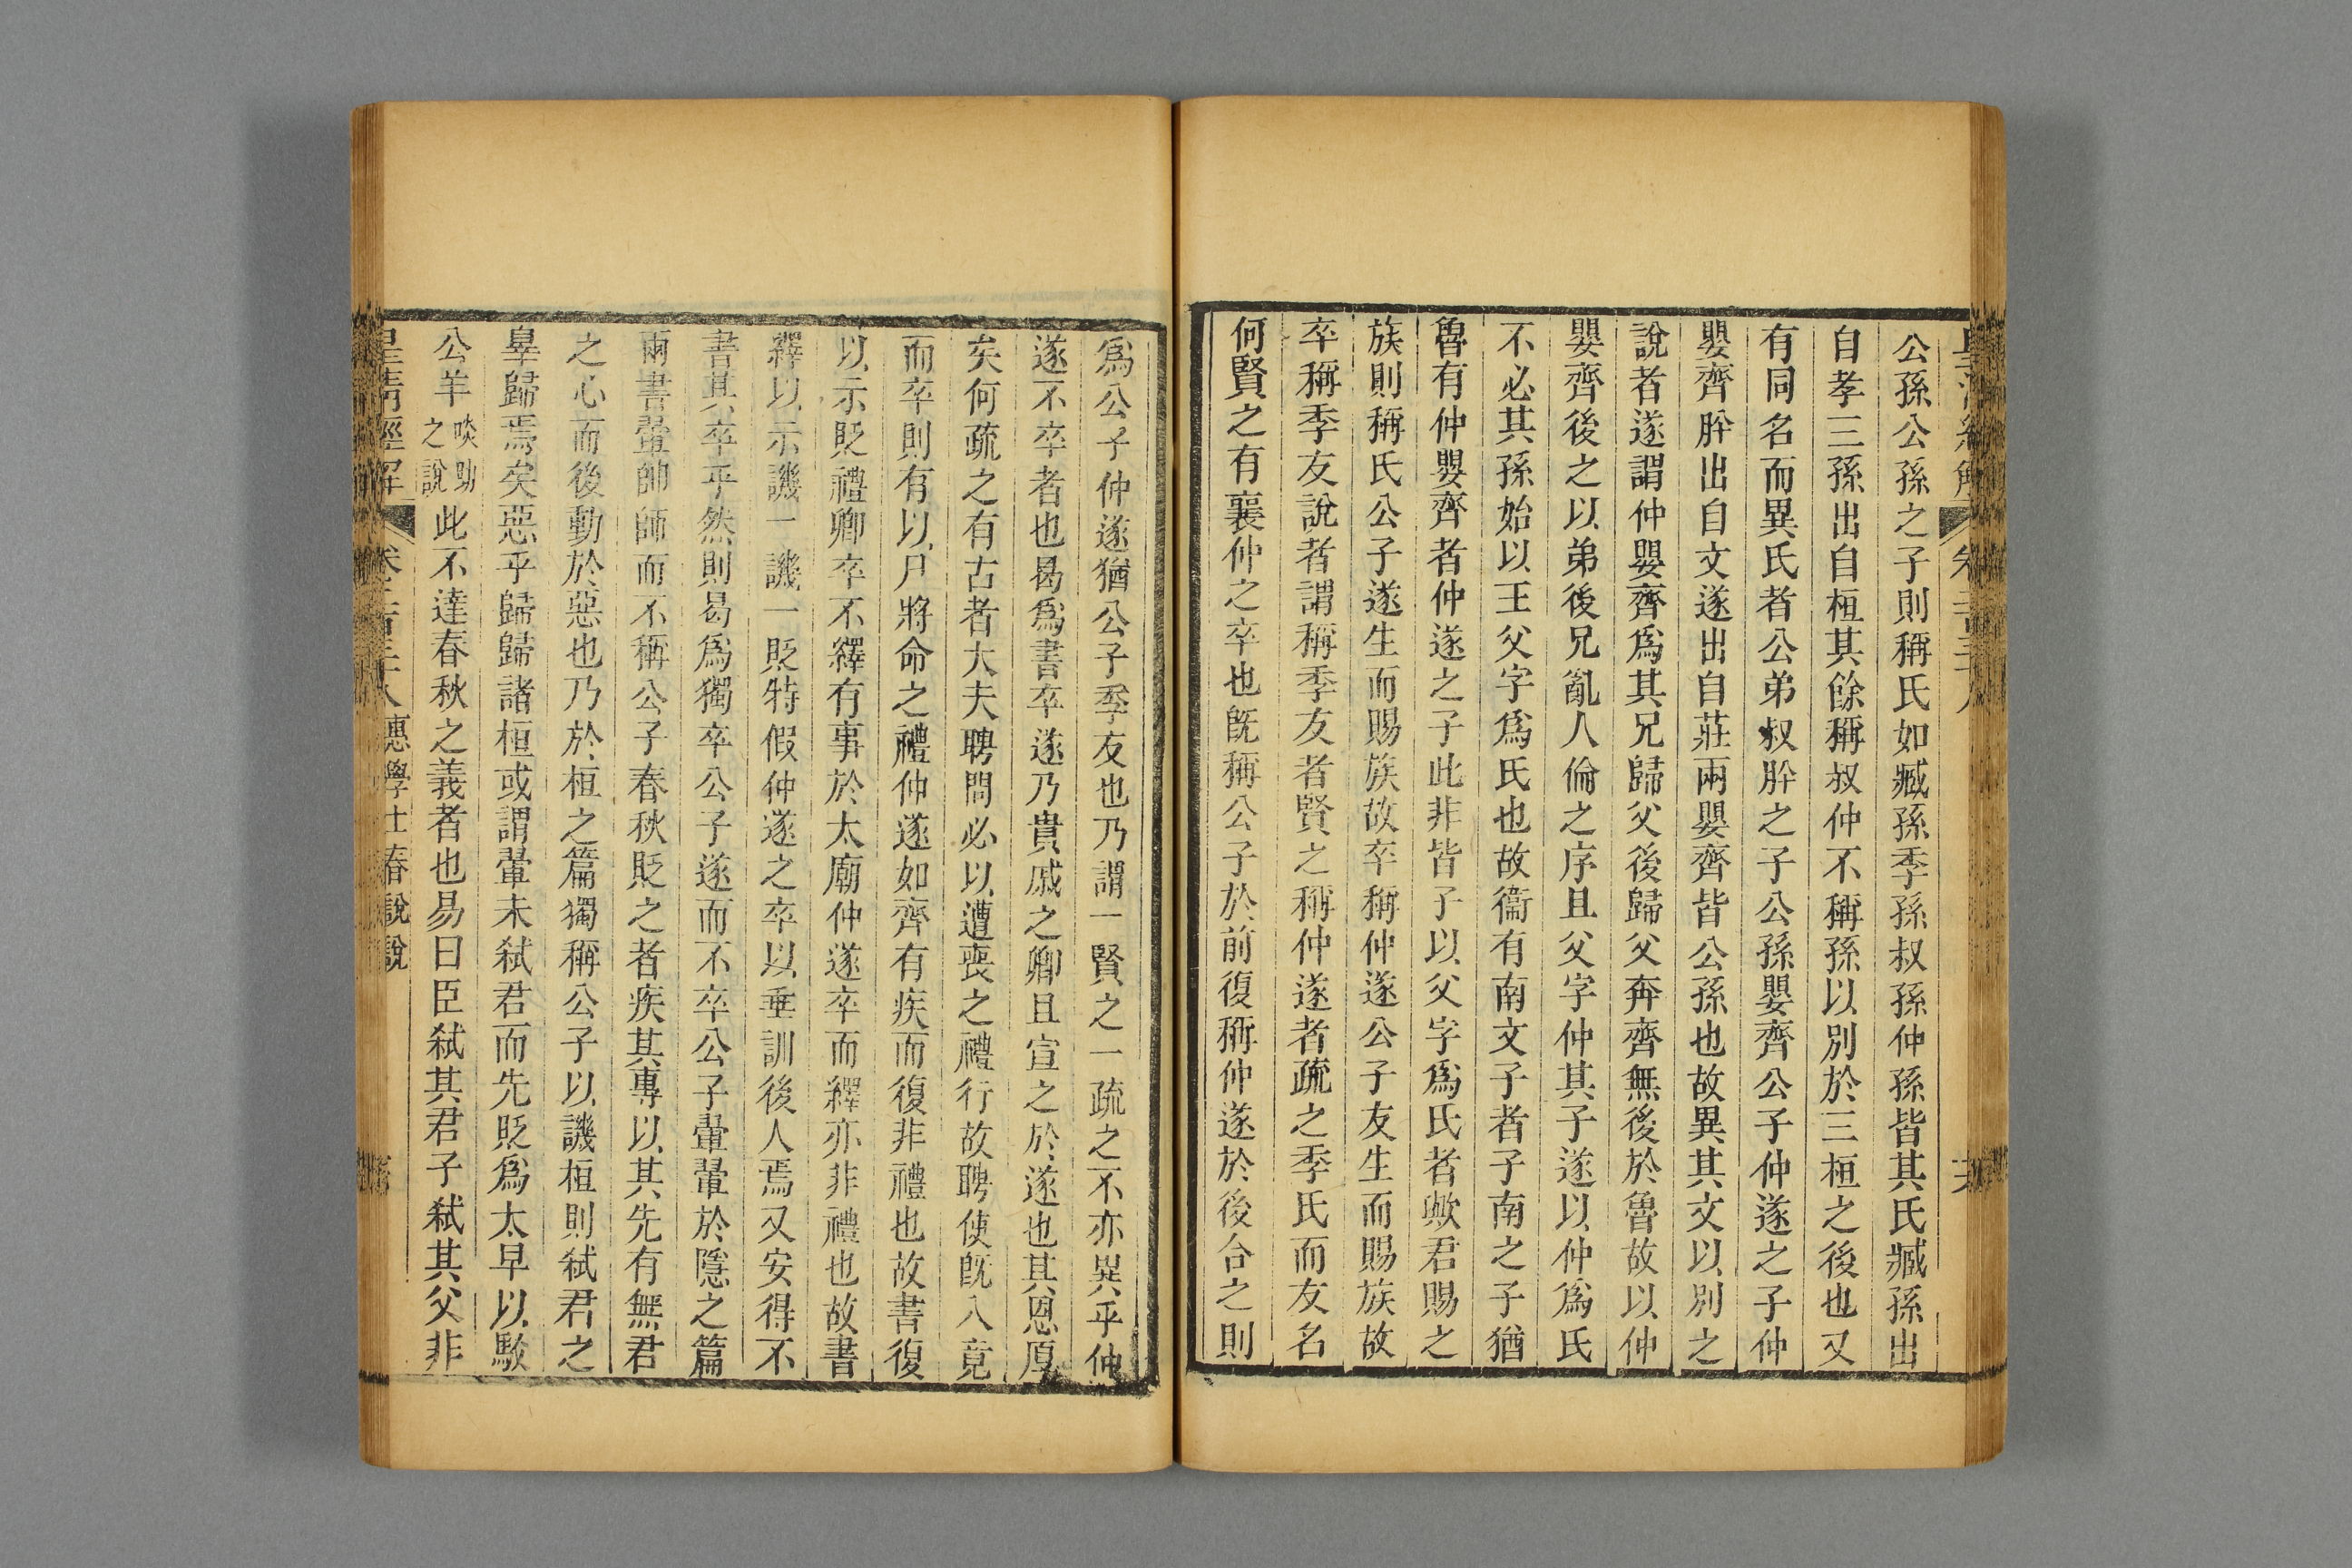 公孫公孫之子則稱氏如臧孫季孫叔孫仲孫皆其氏臧孫出
自孝三孫出自桓其餘稱叔仲不稱孫以別於三桓之後也又
有同名而異氏者公弟叔肸之子公孫嬰齊公子仲遂之子仲
嬰齊肸出自文遂出自莊兩嬰齊皆公孫也故異其文以別之
說者遂謂仲嬰齊爲其兄歸父後歸父奔齊無後於魯故以仲
嬰齊後之以弟後兄亂人倫之序且父字仲其子遂以仲爲氏
不必其孫始以王父字爲氏也故衞有南文子者子南之子猶
魯有仲嬰齊者仲遂之子此非皆子以父字爲氏者歟君賜之
族則稱氏公子遂生而賜族故卒稱仲遂公子友生而賜族故
卒稱季友說者謂稱季友者賢之稱仲遂者疏之季氏而友名
何賢之有襄仲之卒也旣稱公子於前復稱仲遂於後合之則
爲公子仲遂猶公子季友也乃謂一賢之一疏之不亦異乎仲
遂不卒者也曷爲書卒遂乃貴戚之卿且宣之於遂也其恩厚
矣何疏之有古者大夫聘問必以遭喪之禮行故聘使旣入竟
而卒則有以尸將命之禮仲遂如齊有疾而復非禮也故書復
以示貶禮卿卒不繹有事於太廟仲遂卒而繹亦非禮也故書
繹以示譏一譏一貶特假仲遂之卒以垂訓後人焉又安得不
書其卒乎然則曷爲獨卒公子遂而不卒公子翬翬於隱之篇
兩書翬帥師而不稱公子春秋貶之者疾其專以其先有無君
之心而後動於惡也乃於桓之篇獨稱公子以譏桓則弑君之
辠歸焉矣惡乎歸歸諸桓或謂翬未弑君而先貶爲太早以駮
公羊啖助之說此不達春秋之義者也易曰臣弑其君子弑其父非
皇清經解 卷二百三十八 惠學士春秋說